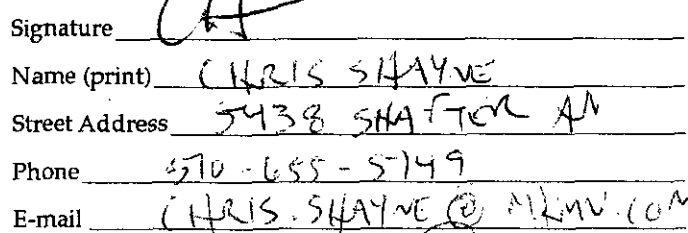 Signature
Name (print) CHRIS SHAYNE
Street Address 5438 SHAFTER AV
Phone 510-655-5749
E-mail CHRIS.SHAYNE@